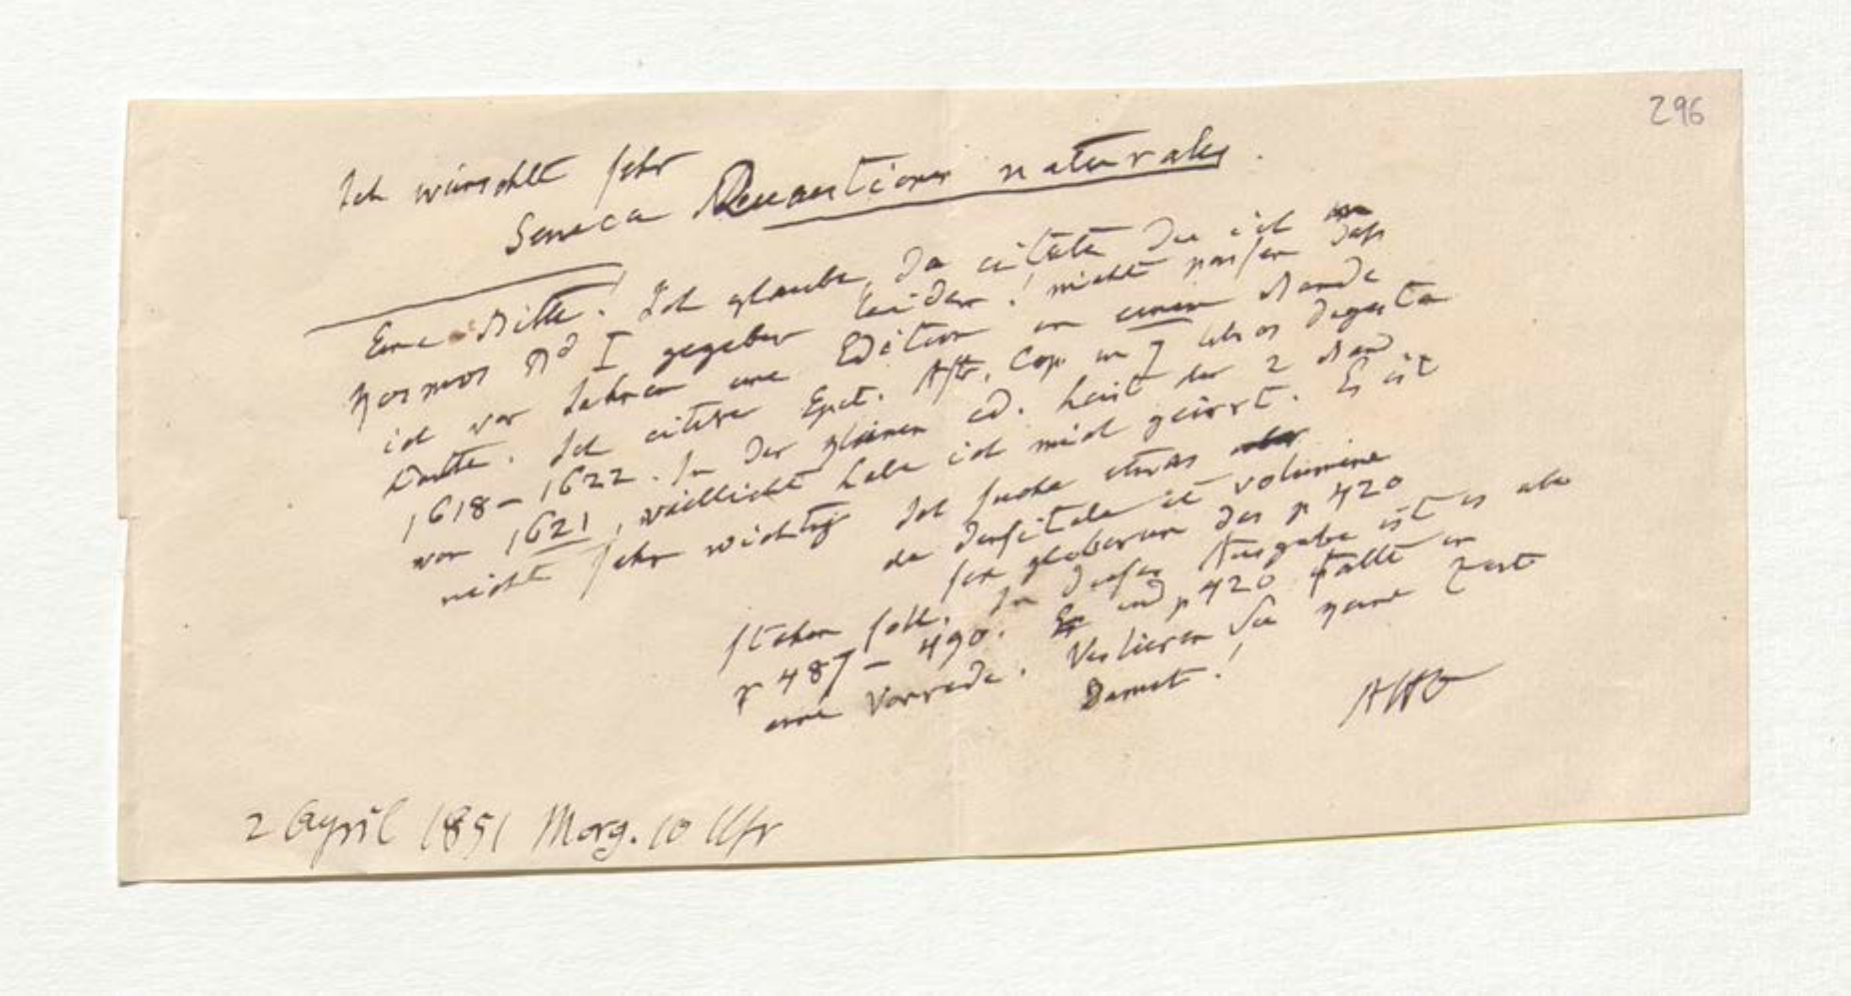 296
Ich wünschte sehr
Seneca Quaestiones naturales.
Eine Bitte! Ich glaube, da citate die ich im
Kosmos Bd I gegeben leider! nicht passen dass
ich vor Jahren eine Edition in einem Bande
hatte. Ich citire Epit. Astr. Cop. in 7 libros digesta
1618–1622. In der kleinen ed. hat der 2 Band
von 1621, vielleicht habe ich mich geirrt. Es ist
nicht sehr wichtig Ich suche etwas
de densitate et volumine
der p 420
stehen soll. In dieser Ausgabe ist es aber
p 487–490. und p 420 fällt in
eine Vorrede. Verlieren Sie keine Zeit
damit!
AHt
2 April 1851 Morg. 10 Uhr